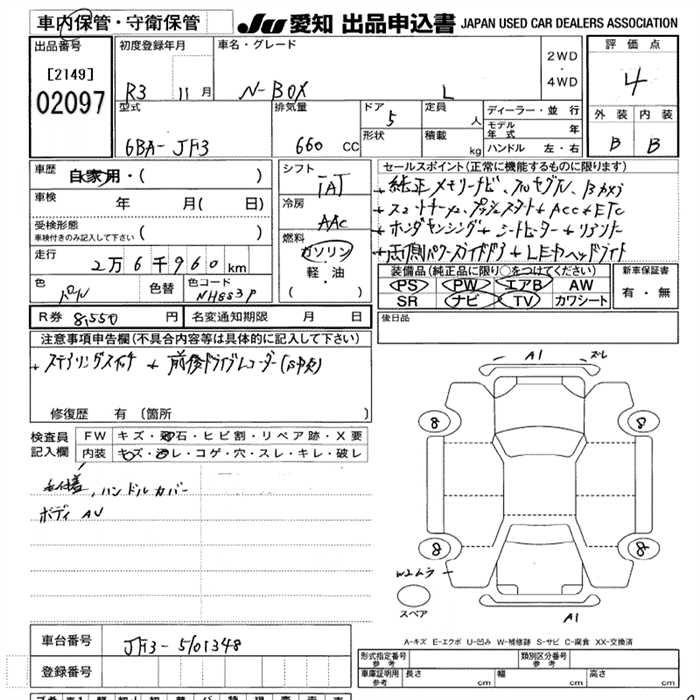 車内保管・守衛保管
JU 愛知 出品申込書 JAPAN USED CAR DEALERS ASSOCIATION
出品番号 初度登録年月 車名・グレード 評価点
[2149]
02097
R3 11月 N-BOX L 2WD・4WD 4
型式 排気量 ドア 定員 ディーラー・並行 外装 内装
6BA-JF3 660 CC 5 人 モデル年式 年 B B
形状 積載 kg ハンドル 左・右
車歴 自家用・( )
シフト IAT
セールスポイント(正常に機能するものに限ります)
+純正メモリーナビ、フルセグTV、Bカメラ
+スマートキー、プッシュスタート+ACC+ETC
+ホンダセンシング+シートヒーター+リアソナー
+両側パワースライドドア+LEDヘッドライト
車検 年 月( 日)
冷房 AAC
受検形態
車検付きのみ記入して下さい ( )
燃料 ガソリン 軽・油 ( )
走行 2万6千960km
色 パール 色替 色コード NH883P
装備品(純正品に限り○をつけてください) 新車保証書
PS PW エアB AW 有・無
SR ナビ TV カワシート
R券 8,550 円 名変通知期限 月 日
後日品
注意事項申告欄(不具合内容等は具体的に記入して下さい)
+ステアリングスイッチ +前後ドライブレコーダー
修復歴 有 (箇所 )
検査員記入欄 FW キズ・飛石・ヒビ割・リペア跡・X要
内装 キズ・汚レ・コゲ・穴・スレ・キレ・破レ
ハンドルカバー
ボディ AU
A1 ズレ
8 8
8 8
W2ムラ
スペア
A1
A-キズ E-エクボ U-凹み W-補修跡 S-サビ C-腐食 XX-交換済
車台番号 JF3-5101348
登録番号
形式指定番号 参考 類別区分番号 参考
車庫証明用 参考 長さ cm 幅 cm 高さ cm